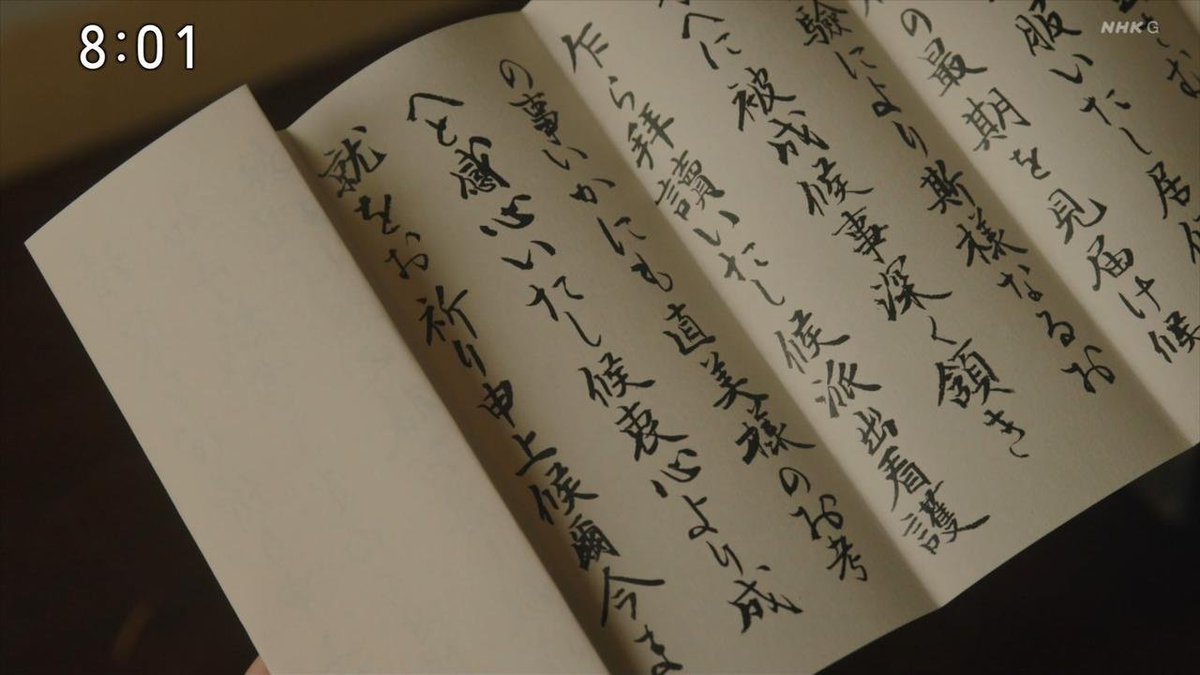 8:01
NHK G
服いたし居候
の最期を見届け候
驗により斯様なるお
へに被成候事深く頷き
乍ら拝讀いたし候派出看護
の事いかにも直美様のお考
へと感心いたし候衷心より成
就をお祈り申上候爾今ま